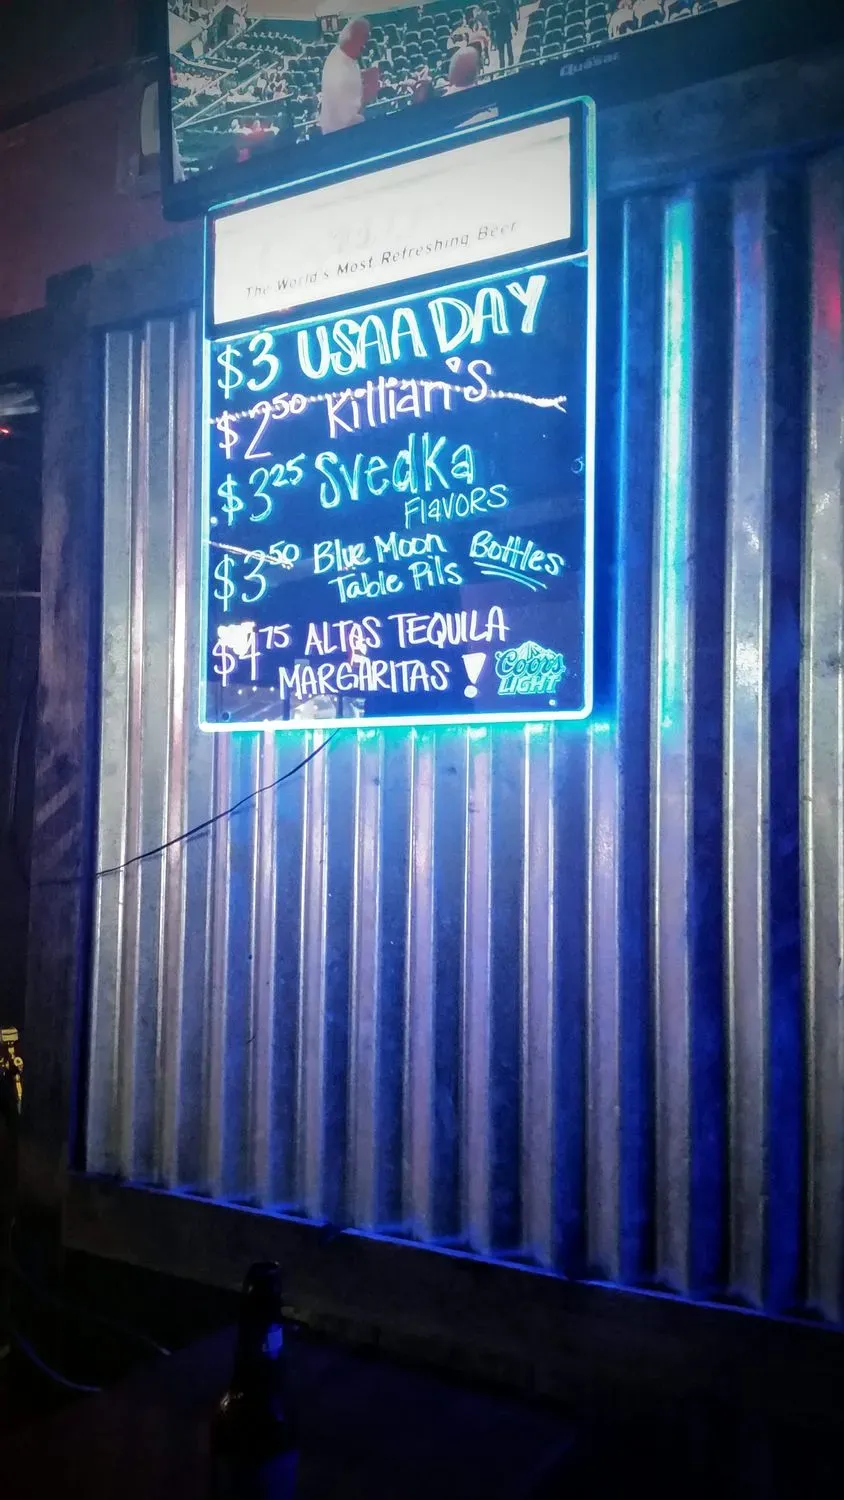 Quasar
The World's Most Refreshing Beer
$3 USAA DAY
$2.50 Killian's
$3.25 Svedka
FLAVORS
$3.50 Blue Moon Bottles
Table Pils
$4.75 ALTOS TEQUILA
MARGARITAS!
Coors
LIGHT